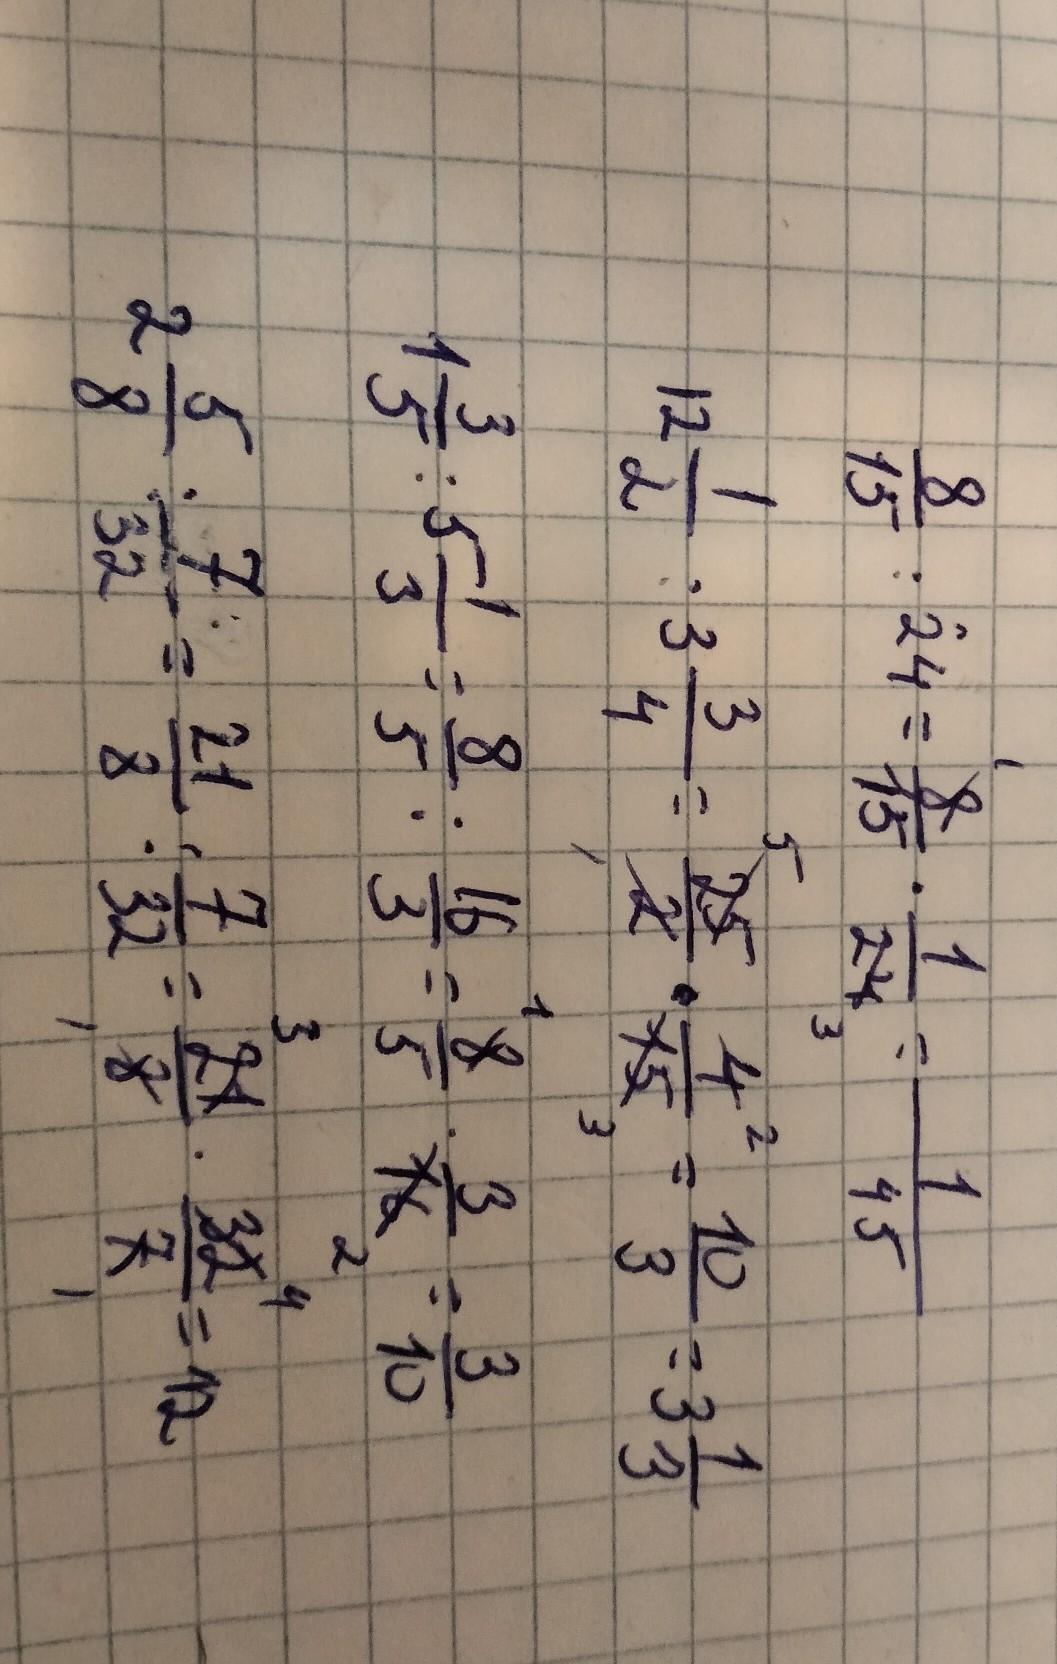 8/15 : 24 = 8/15 · 1/24 = 1/45
12 1/2 : 3 3/4 = 25/2 · 4/15 = 10/3 = 3 1/3
1 3/5 : 5 1/3 = 8/5 : 16/3 = 8/5 · 3/16 = 3/10
2 5/8 : 7/32 = 21/8 : 7/32 = 21/8 · 32/7 = 12